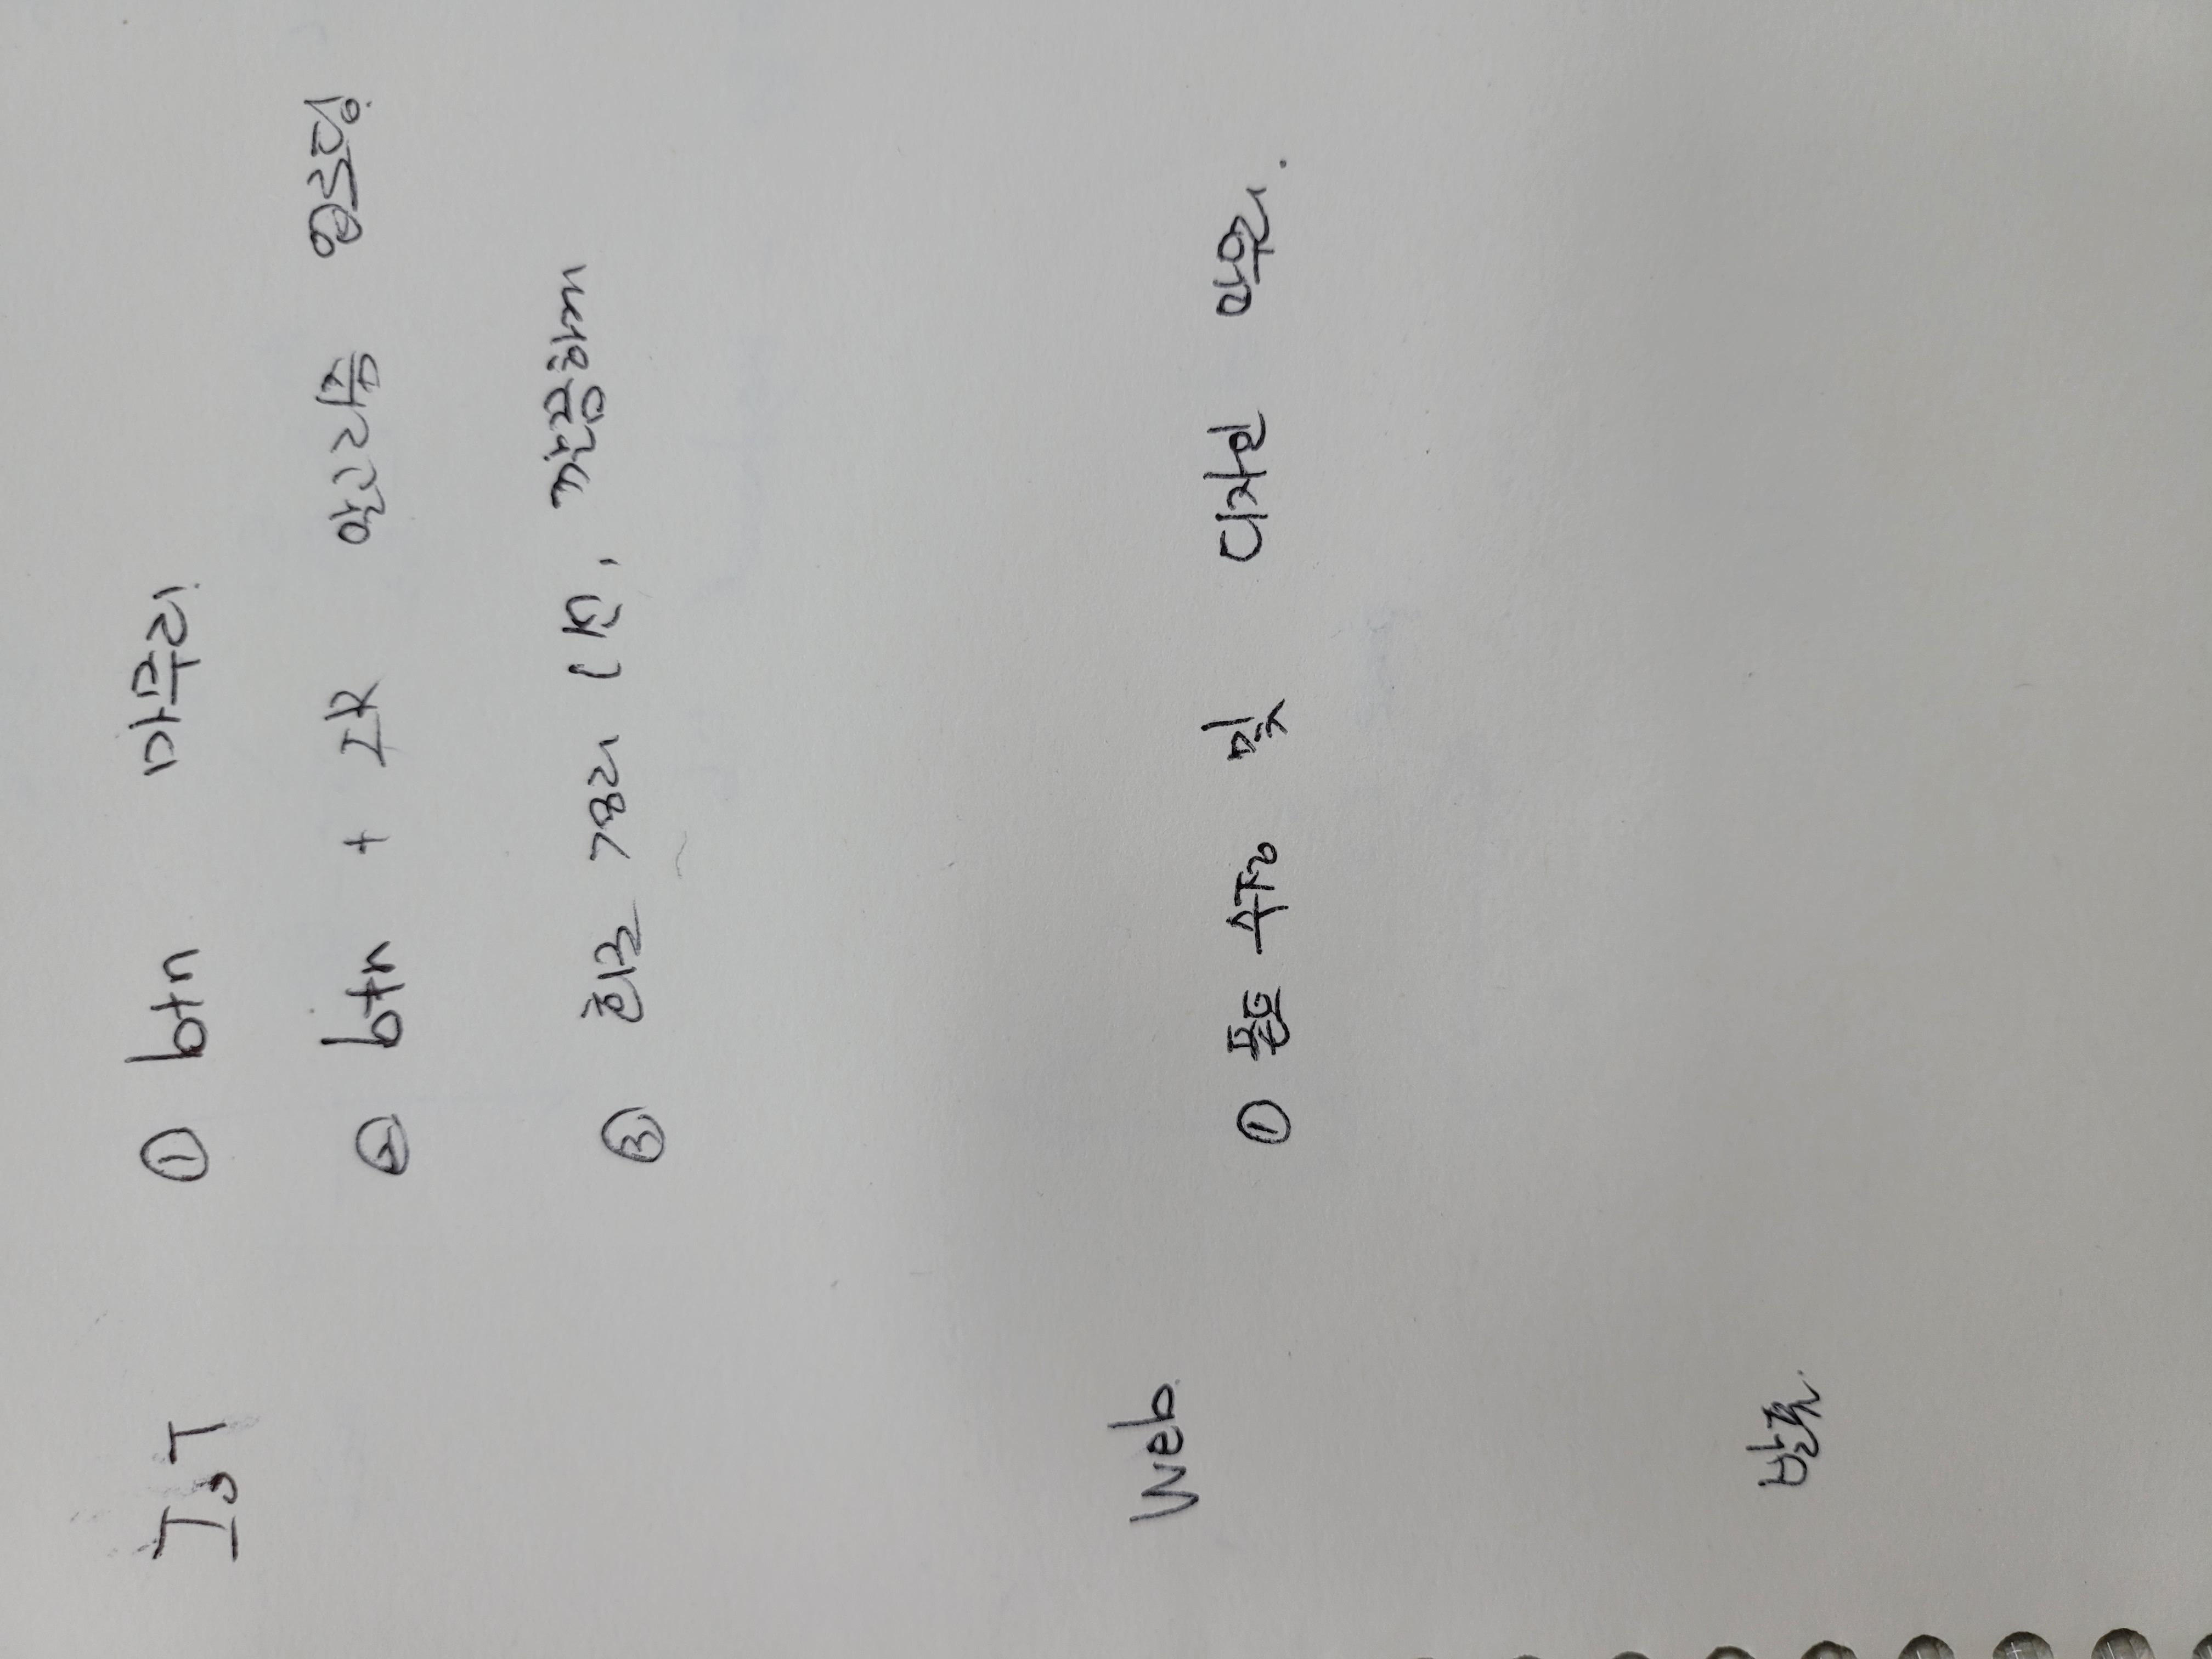 IoT ① btn 마무리
② btn + IR 알고리즘 업로딩.
③ 회로 정리 (선, 깔끔하게
Web.
① 폰트 수정 및 디자인 마무리.
발표.